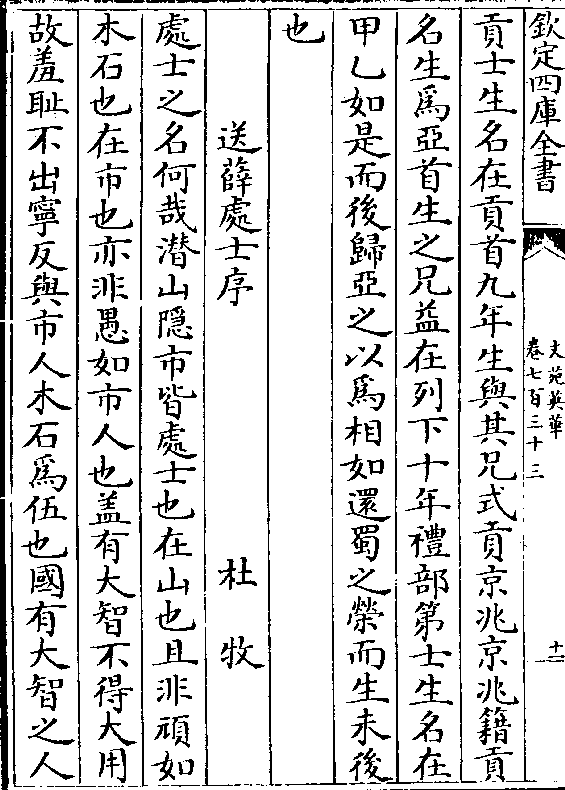 欽定四庫全書
文苑英華
卷七百三十三
十二
貢士生名在貢首九年生與其兄式貢京兆京兆籍貢
名生爲亞首生之兄益在列下十年禮部第士生名在
甲乙如是而後歸亞之以爲相如還蜀之榮而生未後
也
送薛處士序
杜牧
處士之名何哉潜山隱市皆處士也在山也且非頑如
木石也在市也亦非愚如市人也盖有大智不得大用
故羞耻不出寧反與市人木石爲伍也國有大智之人